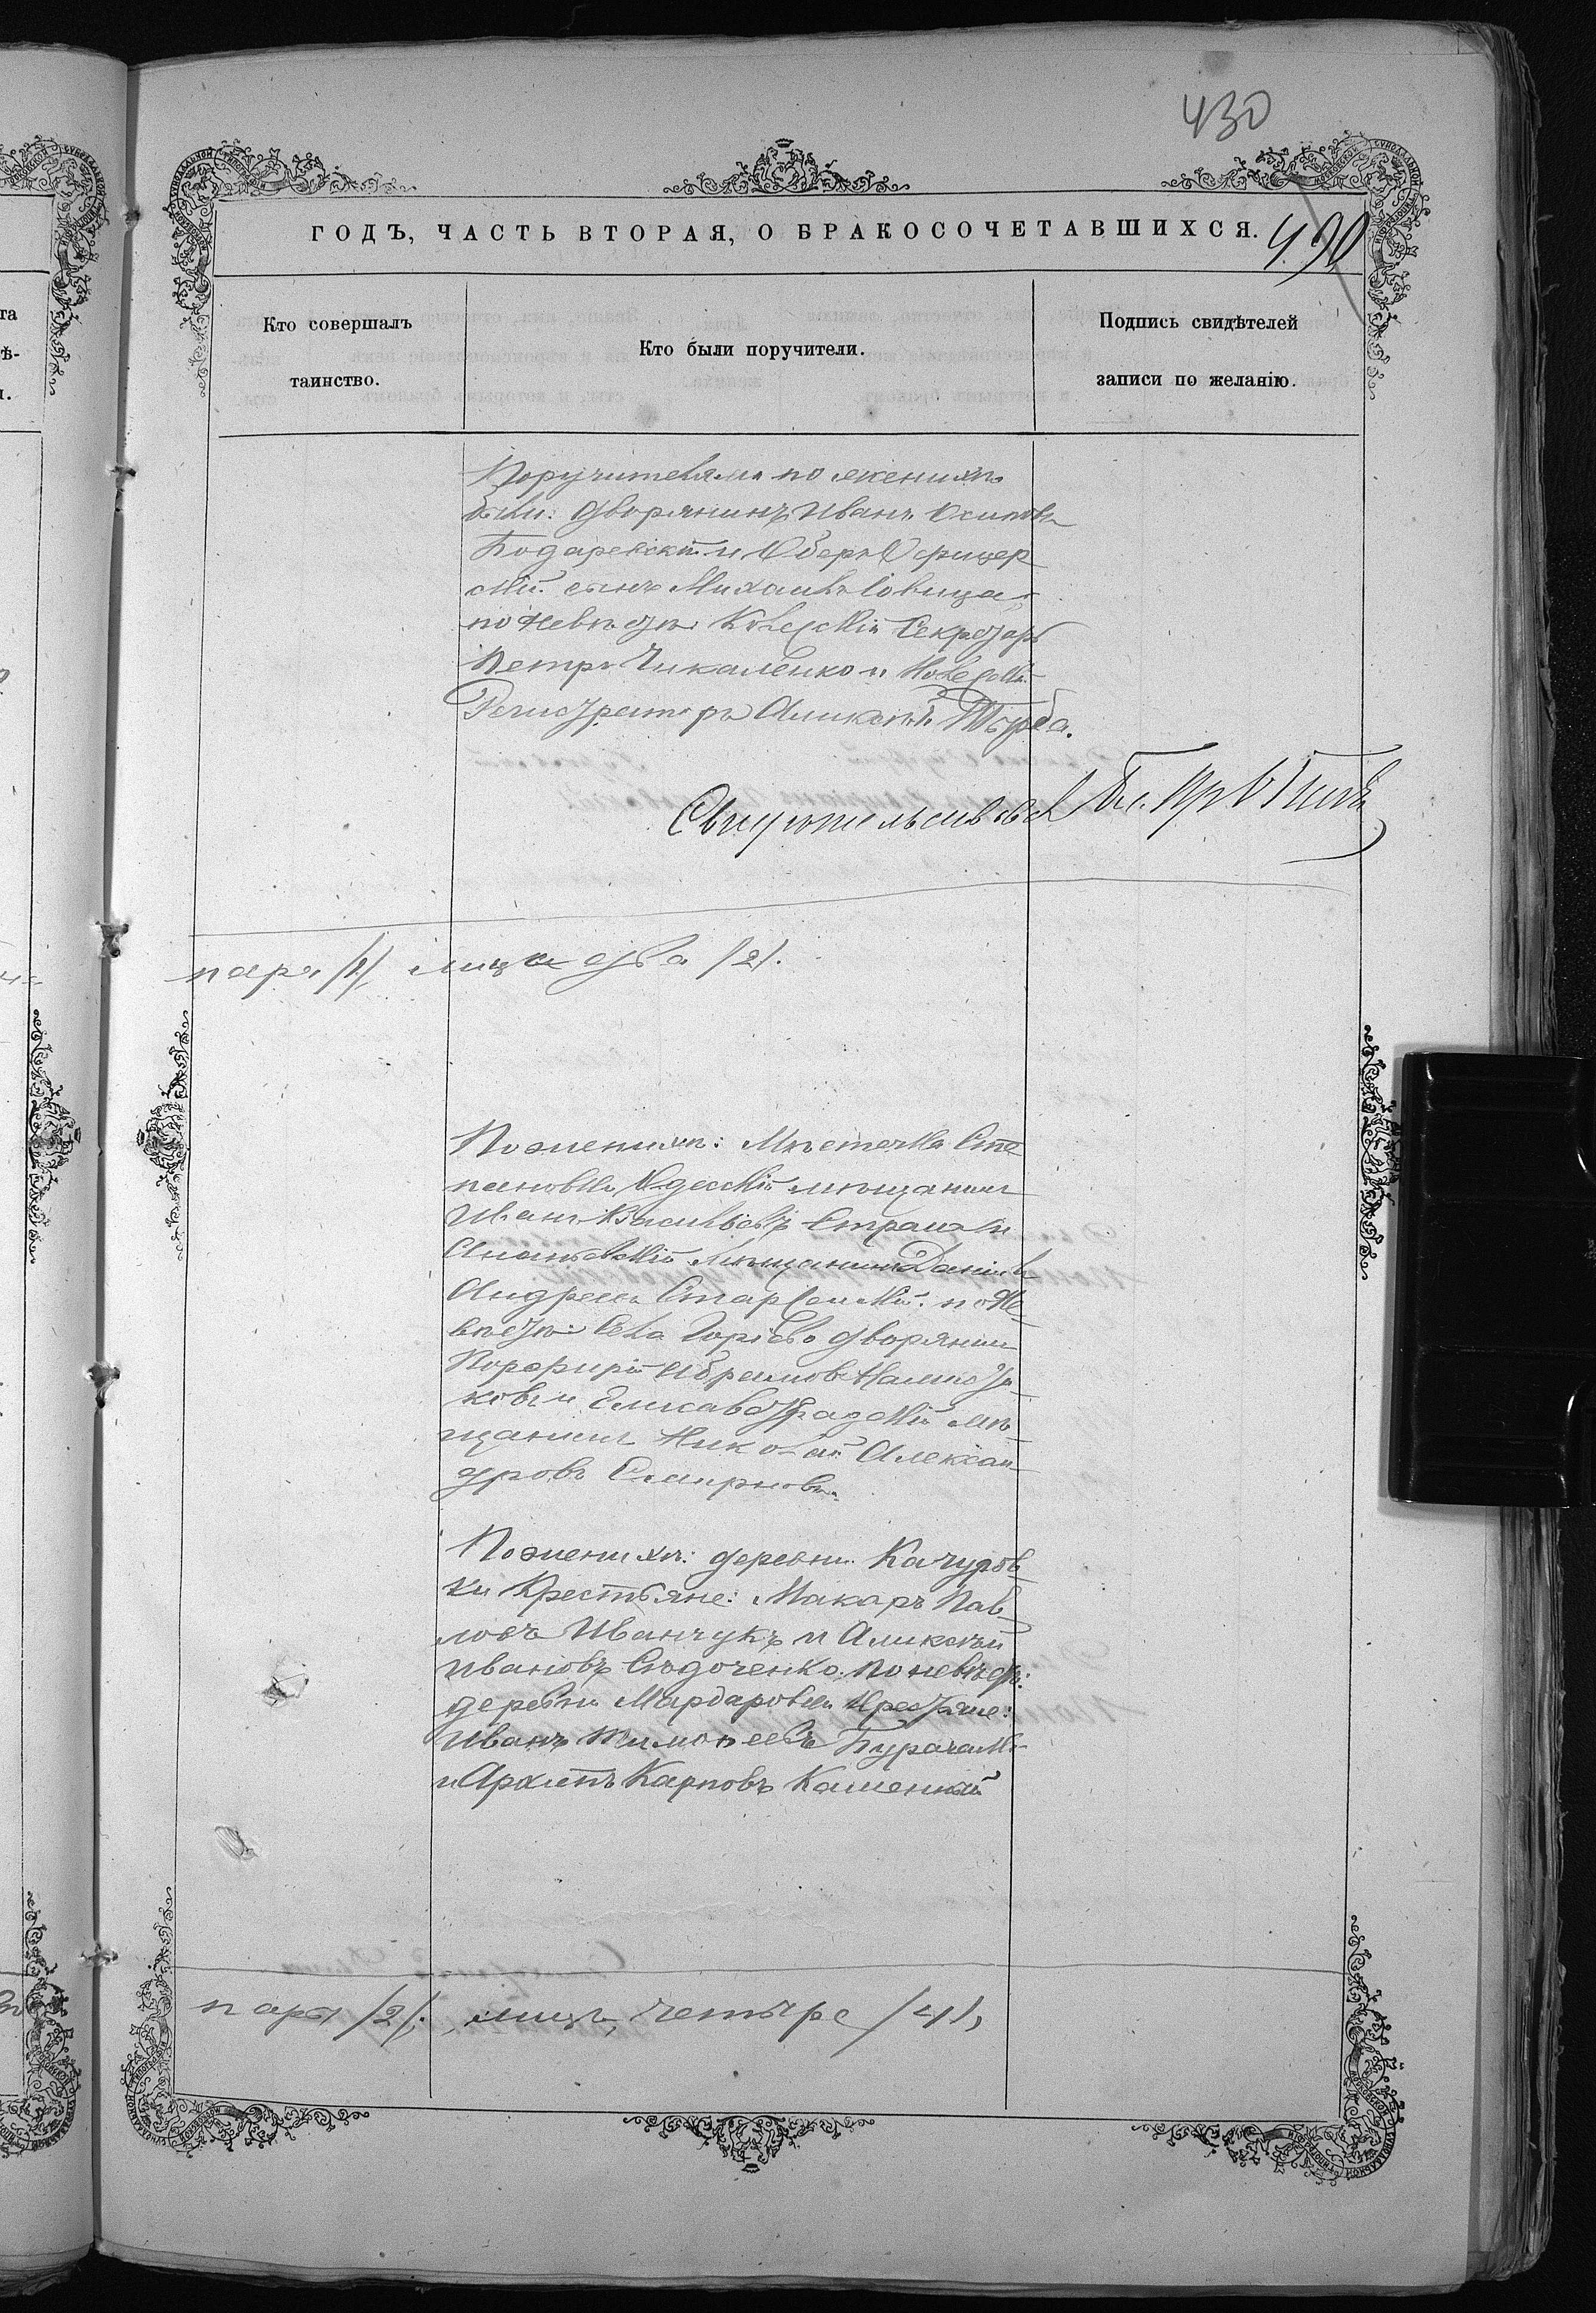 430
ГОДЪ, ЧАСТЬ ВТОРАЯ, О БРАКОСОЧЕТАВШИХСЯ.
490
Кто совершалъ
таинство.
Кто были поручители.
Подпись свидѣтелей
записи по желанію.
Поручителями по женихѣ
были: дворянинъ Иванъ Осиповъ
Бодаревскій и Оберъ Офицер
скій сынъ Михаилъ Іовица
по невѣстѣ Колескій Секретарь
Петръ Чикаленко и Колескій
Регистраторъ Аликсѣй Търба.
Свидѣтельствовал
пара /1/, лица два /2/.
По женихѣ: Мѣстечка Сте
пановки Одесскій мѣщанинъ
Иванъ Васильевъ Страшъ и
Ананьевскій Мѣщанинъ Даніилъ
Андреевъ Старсельскій. по Не
вѣстѣ: Села Горіево дворянинъ
Порфирій Абрамовъ
ковъ и Елисаветградскій мѣ
щанинъ Николай Александ
дровъ Смирновъ.
По женихѣ: деревни Качуров
ки Крестьяне: Макаръ Пав
ловъ Иванчукъ и Аликсѣй
Ивановъ Сѣдоченко. По невѣстѣ:
деревни Мардаровки Крестьяне:
Иванъ Тимофеевъ
и Архипъ Карповъ Каменный
пары /2/, лицъ, четыре /4/,